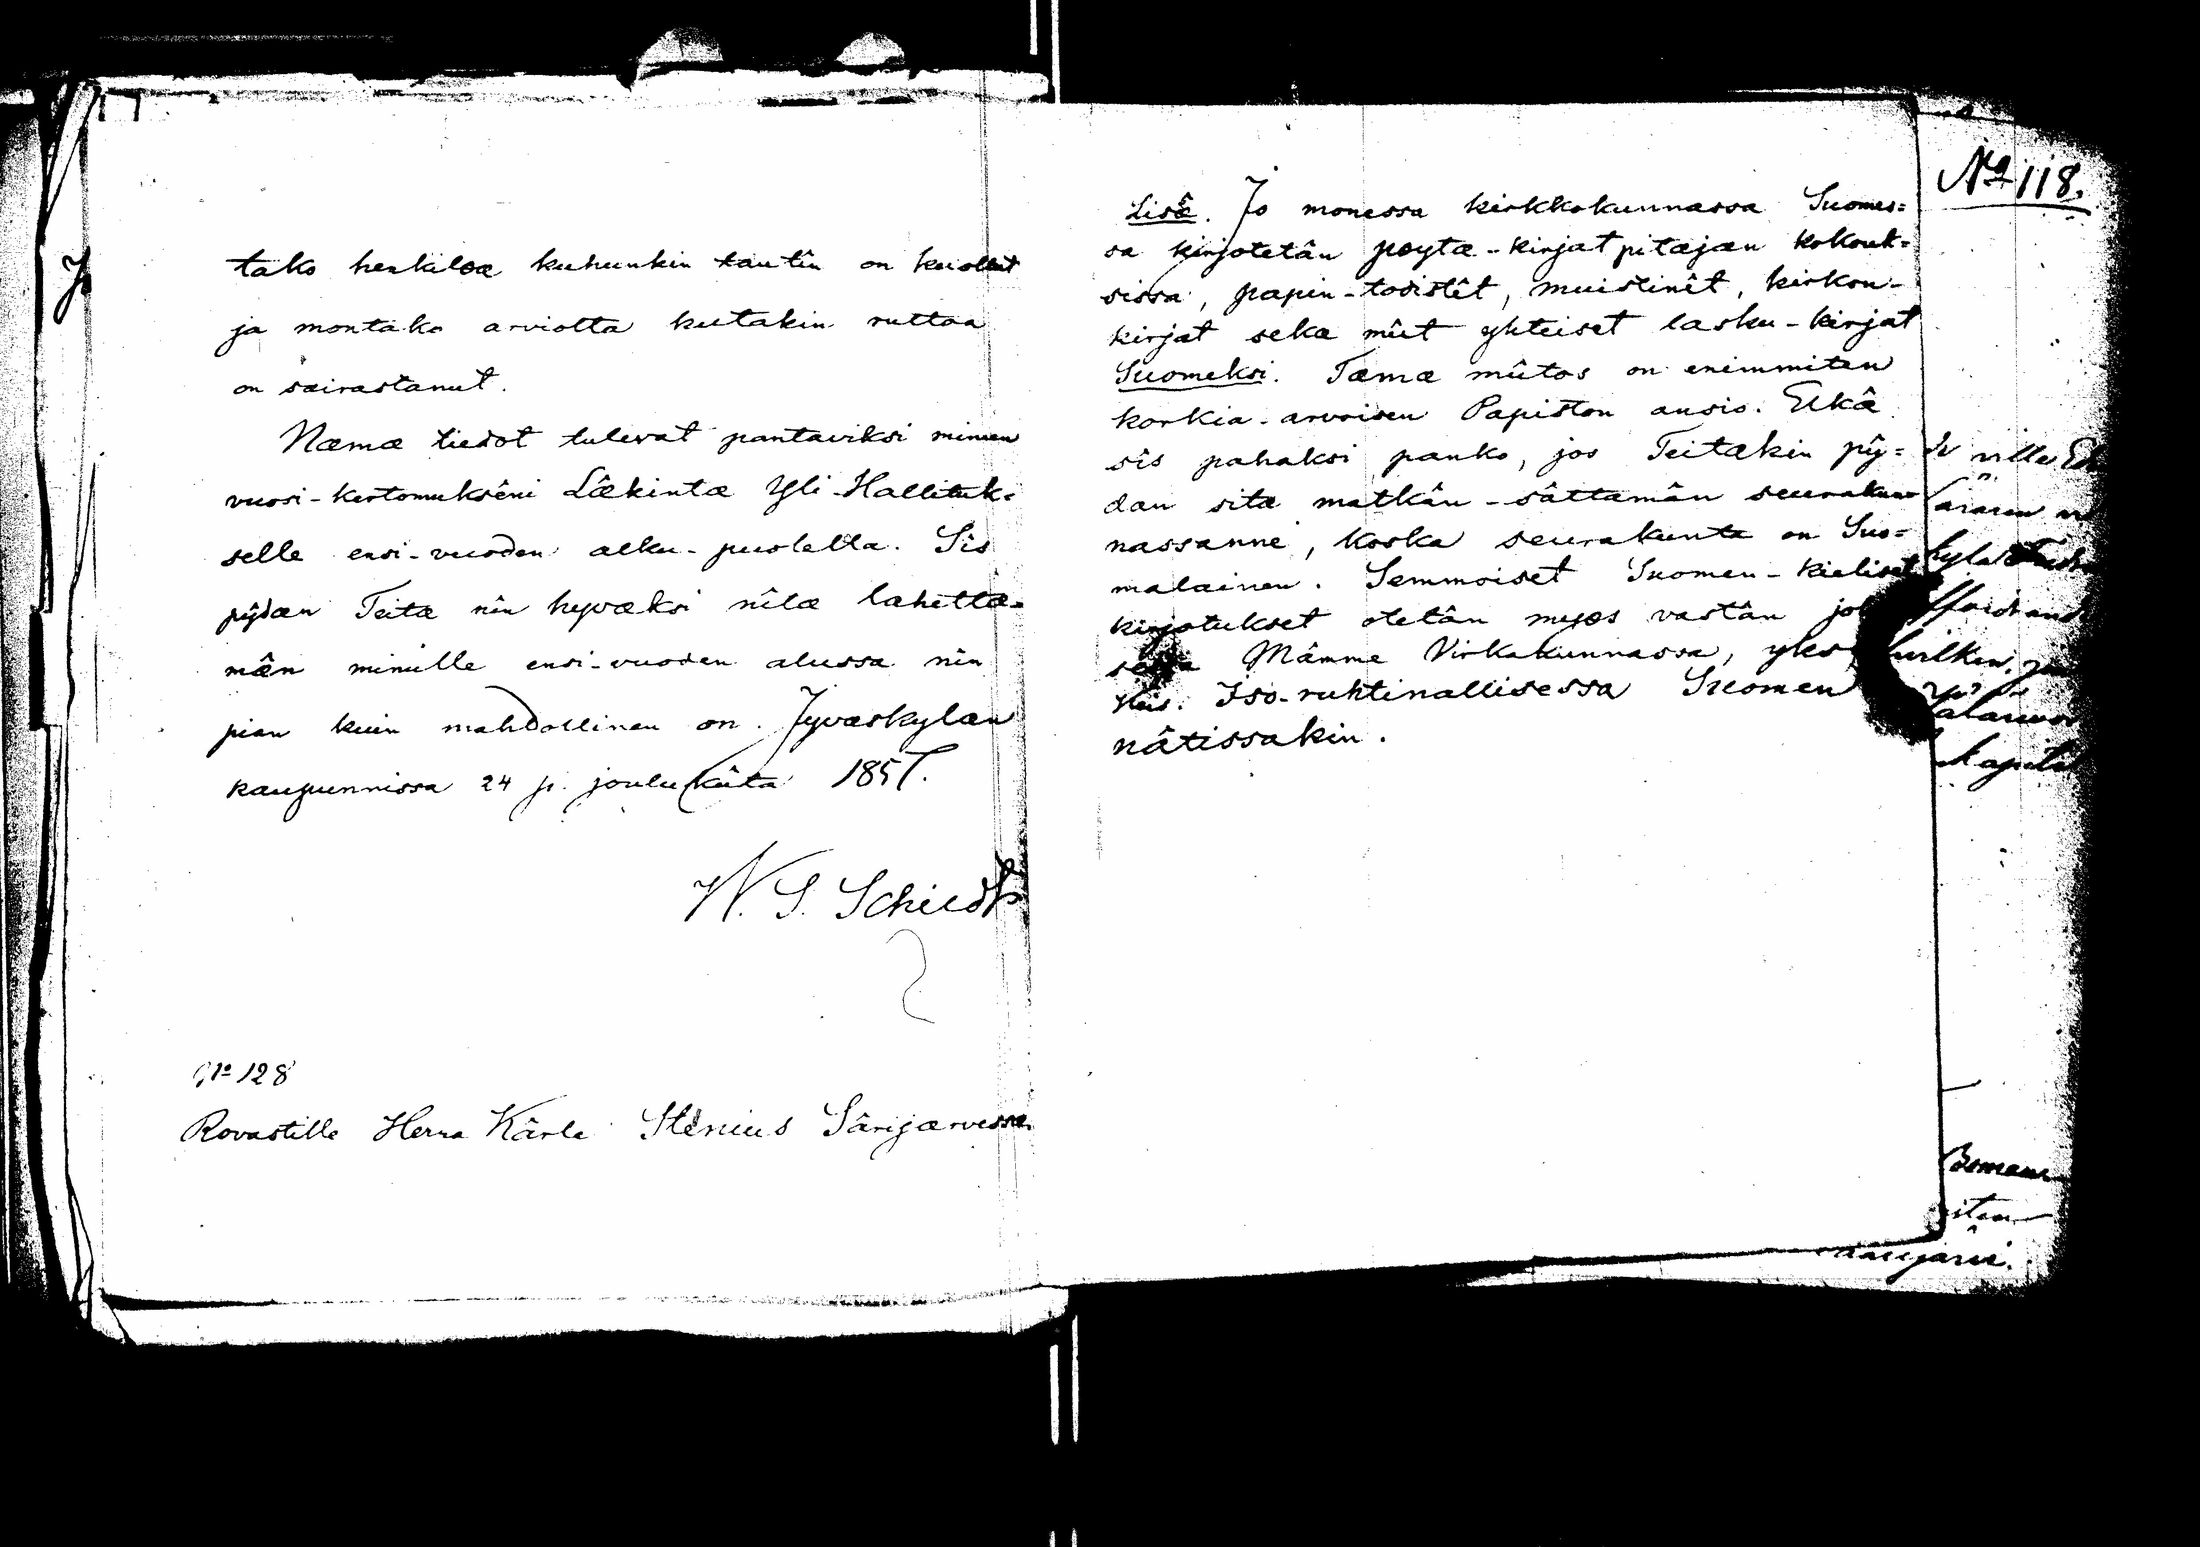 tako henkilœæ kuhunkin tautîn on kuollut
ja montako arviolta kutakin ruttoa
on sairastanut.
Næmæ tiedot tulevat pantaviksi minun
vuosi-kertomuksêni Lækintæ Yli-Hallituk-
selle ensi-vuoden alku-puolella. Sîs
pŷdæn Teitæ nîn hyvæksi nîtæ læhettæ-
mæ̂n minulle ensi-vuoden alussa nîn
pian kuin mahdollinen on. Jyvæskylæn
kaupunnissa 24 p. joulukûta 1857.
W. S. Schildt
Nº 128
Rovastille Herra Kârle Stenius Sârijærvessæ.
Lisæ̂. Jo monessa kirkkokunnassa Suomes=
sa kirjotetân pœytæ-kirjat pitæjæn kokouk=
sissa, papin-todistêt, muistinêt, kirkon-
kirjat sekæ mût yhteiset lasku-kirjat
Suomeksi. Tæmæ mûtos on enimmiten
korkia-arvoisen Papiston ansio. Elkæ̂
sîs pahaksi panko, jos Teitækin pŷ=
dæn sitæ matkân-sâttamân seurakun-
nassanne, koska seurakunta on Suo=
malainen. Semmoiset Suomen-kieliset
kirjotukset otetân myœs vastân
Mâmme Virkakunnassa, yks
Keis. Iso-ruhtinallisessa Suomen
nâtissakin.
Nº 118.